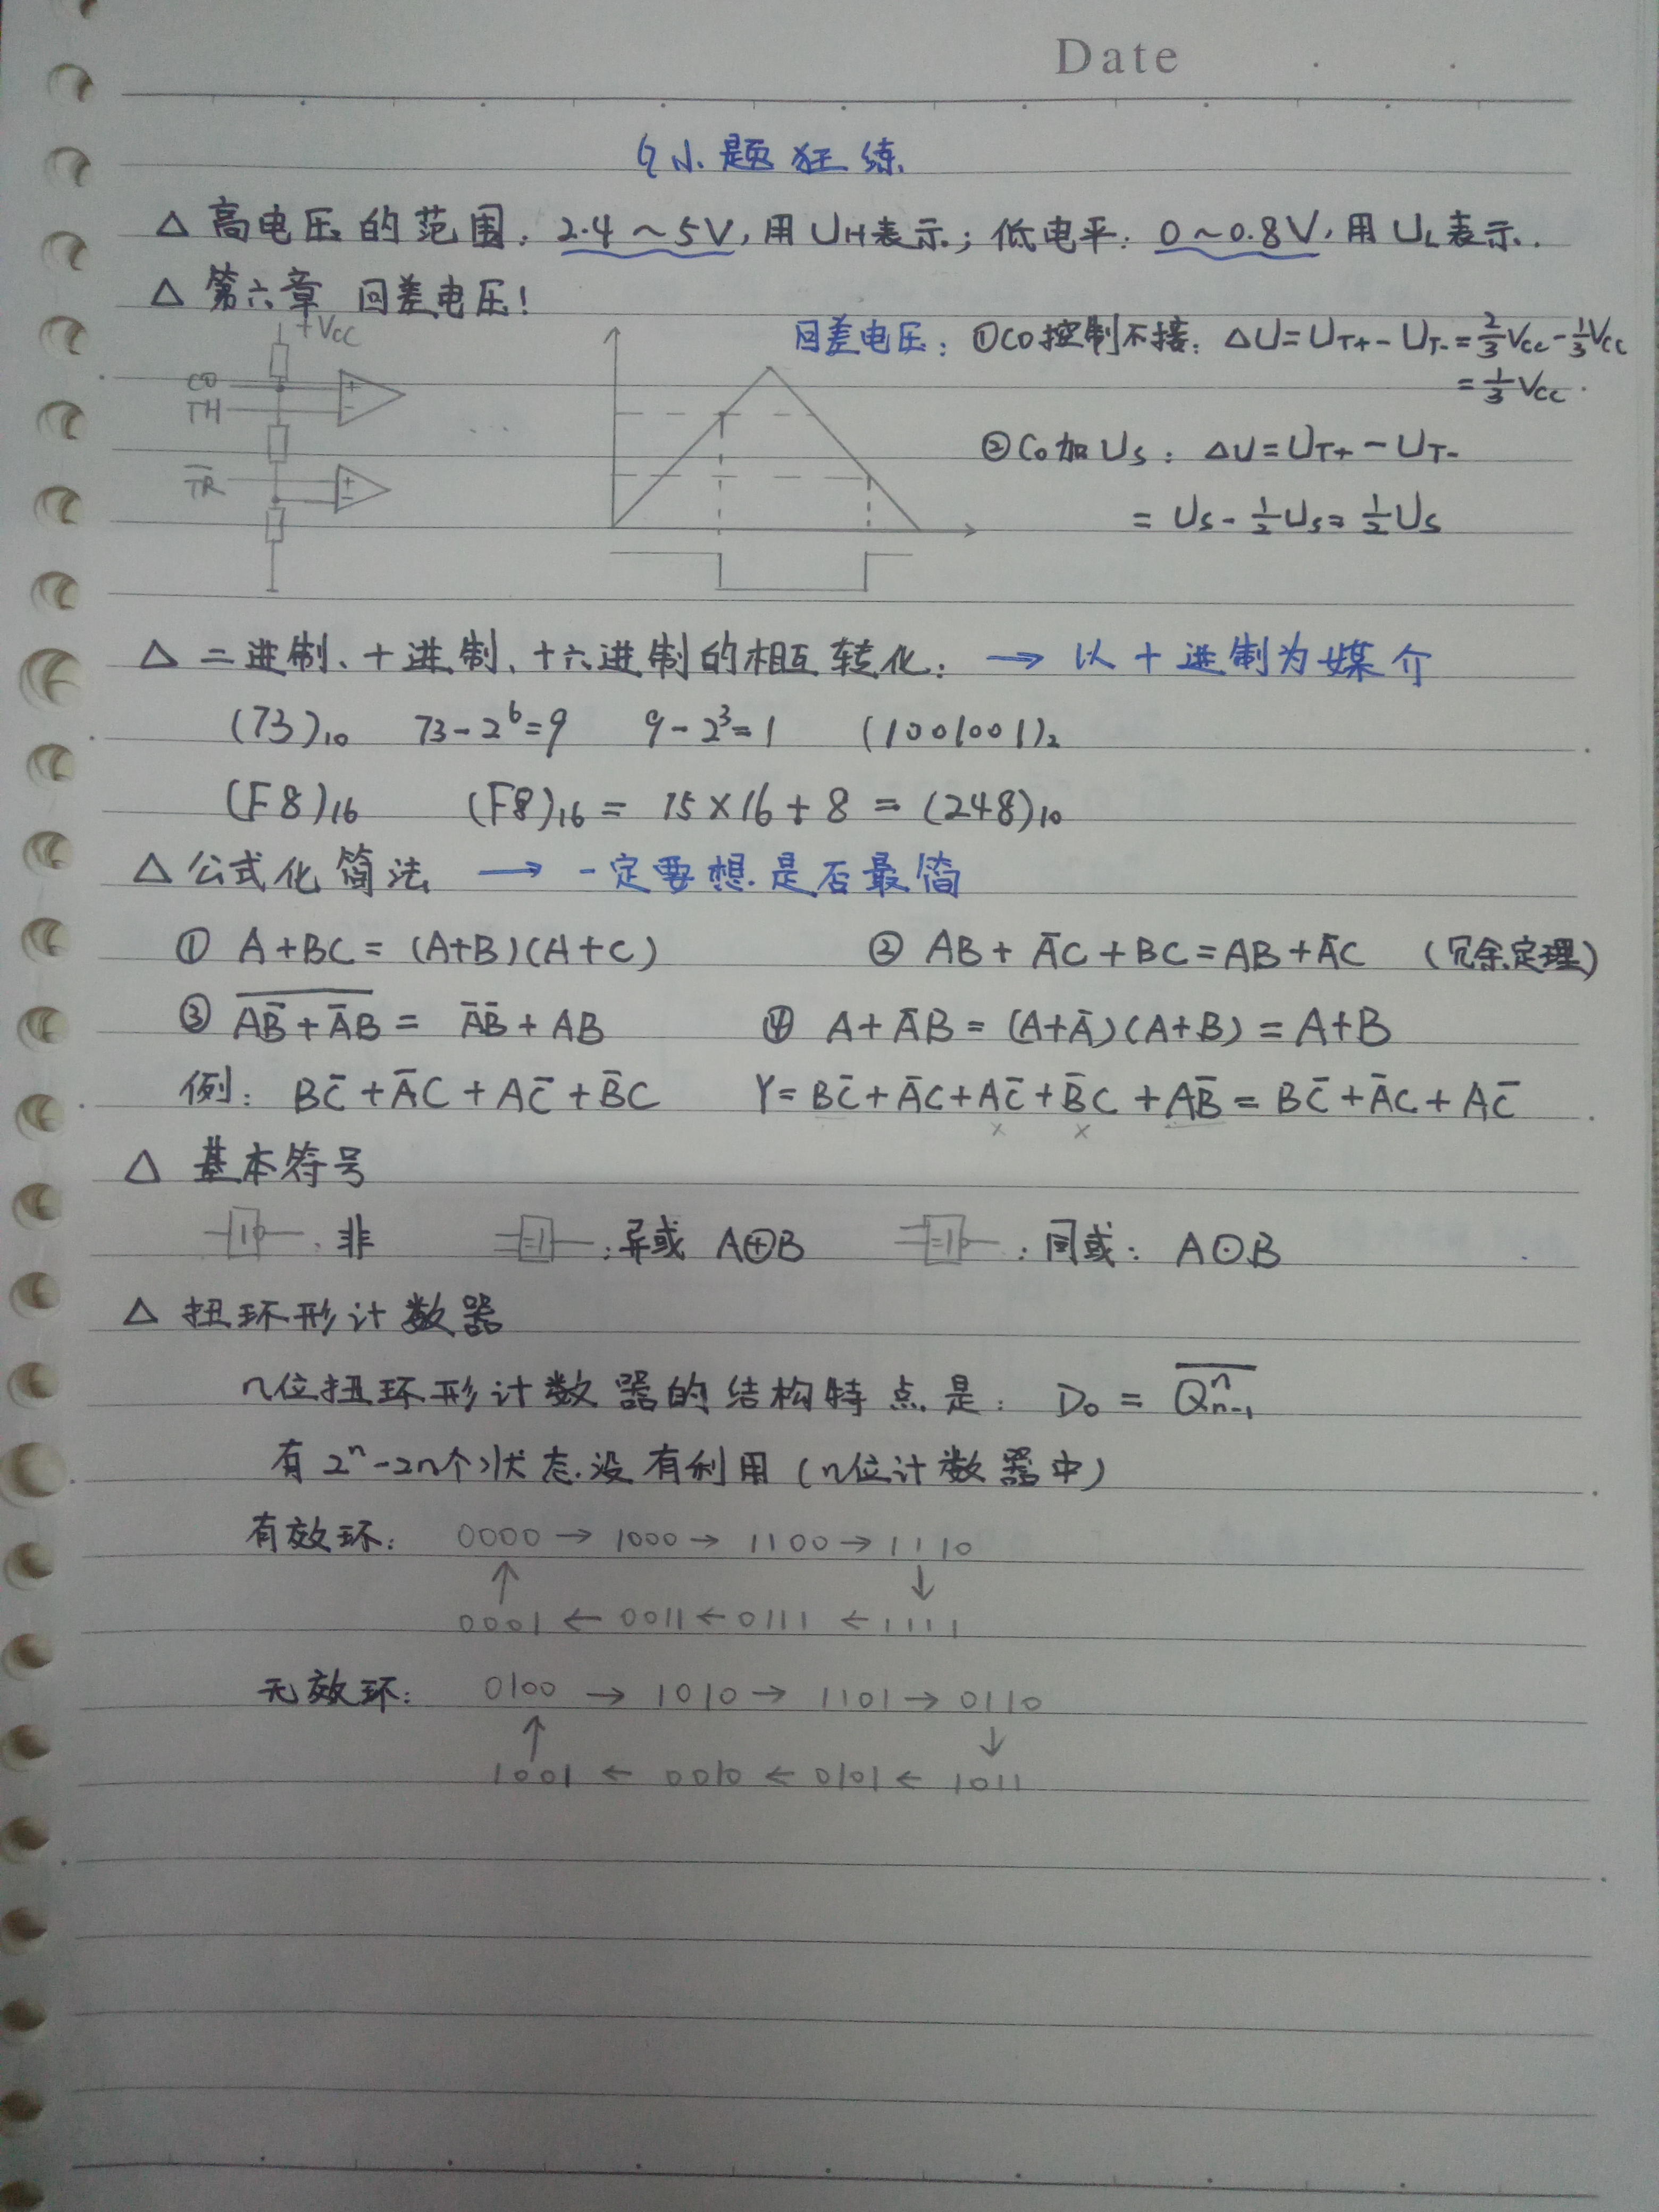 Date
小题狂练
△ 高电压的范围：2.4～5V，用UH表示；低电平：0～0.8V，用UL表示.
△ 第六章 回差电压！
+Vcc
CO
TH
T̅R̅
回差电压：①CO控制不接：△U=UT+－UT-=2/3Vcc－1/3Vcc
=1/3Vcc.
②Co加Us：△U=UT+－UT-
=Us-1/2Us=1/2Us
△ 二进制、十进制、十六进制的相互转化：→ 以十进制为媒介
(73)₁₀ 73-2⁶=9 9-2³=1 (1001001)₂
(F8)₁₆ (F8)₁₆= 15×16+8=(248)₁₀
△ 公式化简法 → 一定要想是否最简
① A+BC=(A+B)(A+C) ② AB+A̅C+BC=AB+A̅C (冗余定理)
③ \overline{AB̅+A̅B}= A̅B̅+AB ④ A+A̅B=(A+A̅)(A+B)=A+B
例：BC̅+A̅C+AC̅+B̅C Y=BC̅+A̅C+AC̅+B̅C+AB̅=BC̅+A̅C+AC̅
× ×
△ 基本符号
1：非 =1：异或 A⊕B =1：同或：A⊙B
△ 扭环形计数器
n位扭环形计数器的结构特点是：D₀=\overline{Qⁿₙ₋₁}
有2ⁿ-2n个状态没有利用(n位计数器中)
有效环：0000→1000→1100→1110
↑ ↓
0001←0011←0111←1111
无效环：0100→1010→1101→0110
↑ ↓
1001←0010←0101←1011